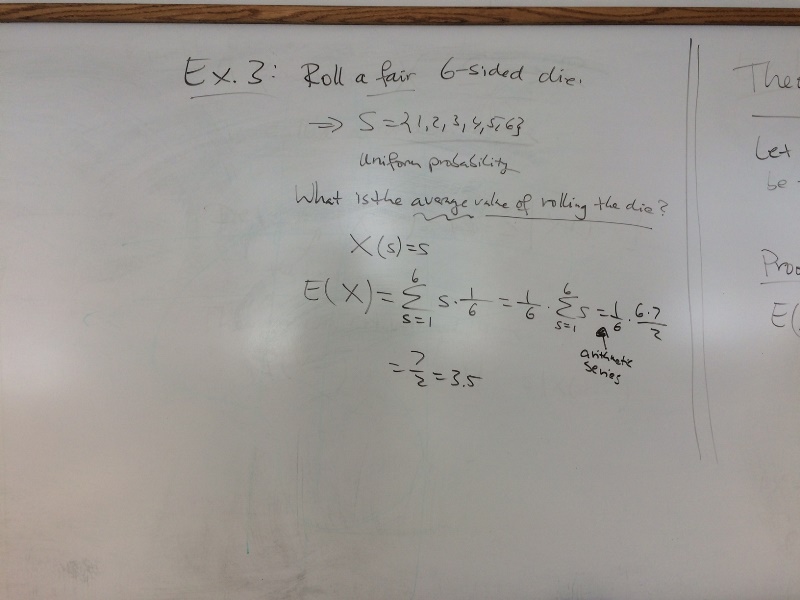 Ex. 3: Roll a fair 6-sided die.
⇒ S = {1, 2, 3, 4, 5, 6}
Uniform probability
What is the average value of rolling the die?
X(s) = s
E(X) = ∑_{s=1}^{6} s · 1/6 = 1/6 · ∑_{s=1}^{6} s = 1/6 · 6·7/2
arithmetic
series
= 7/2 = 3.5
Let
be
E(